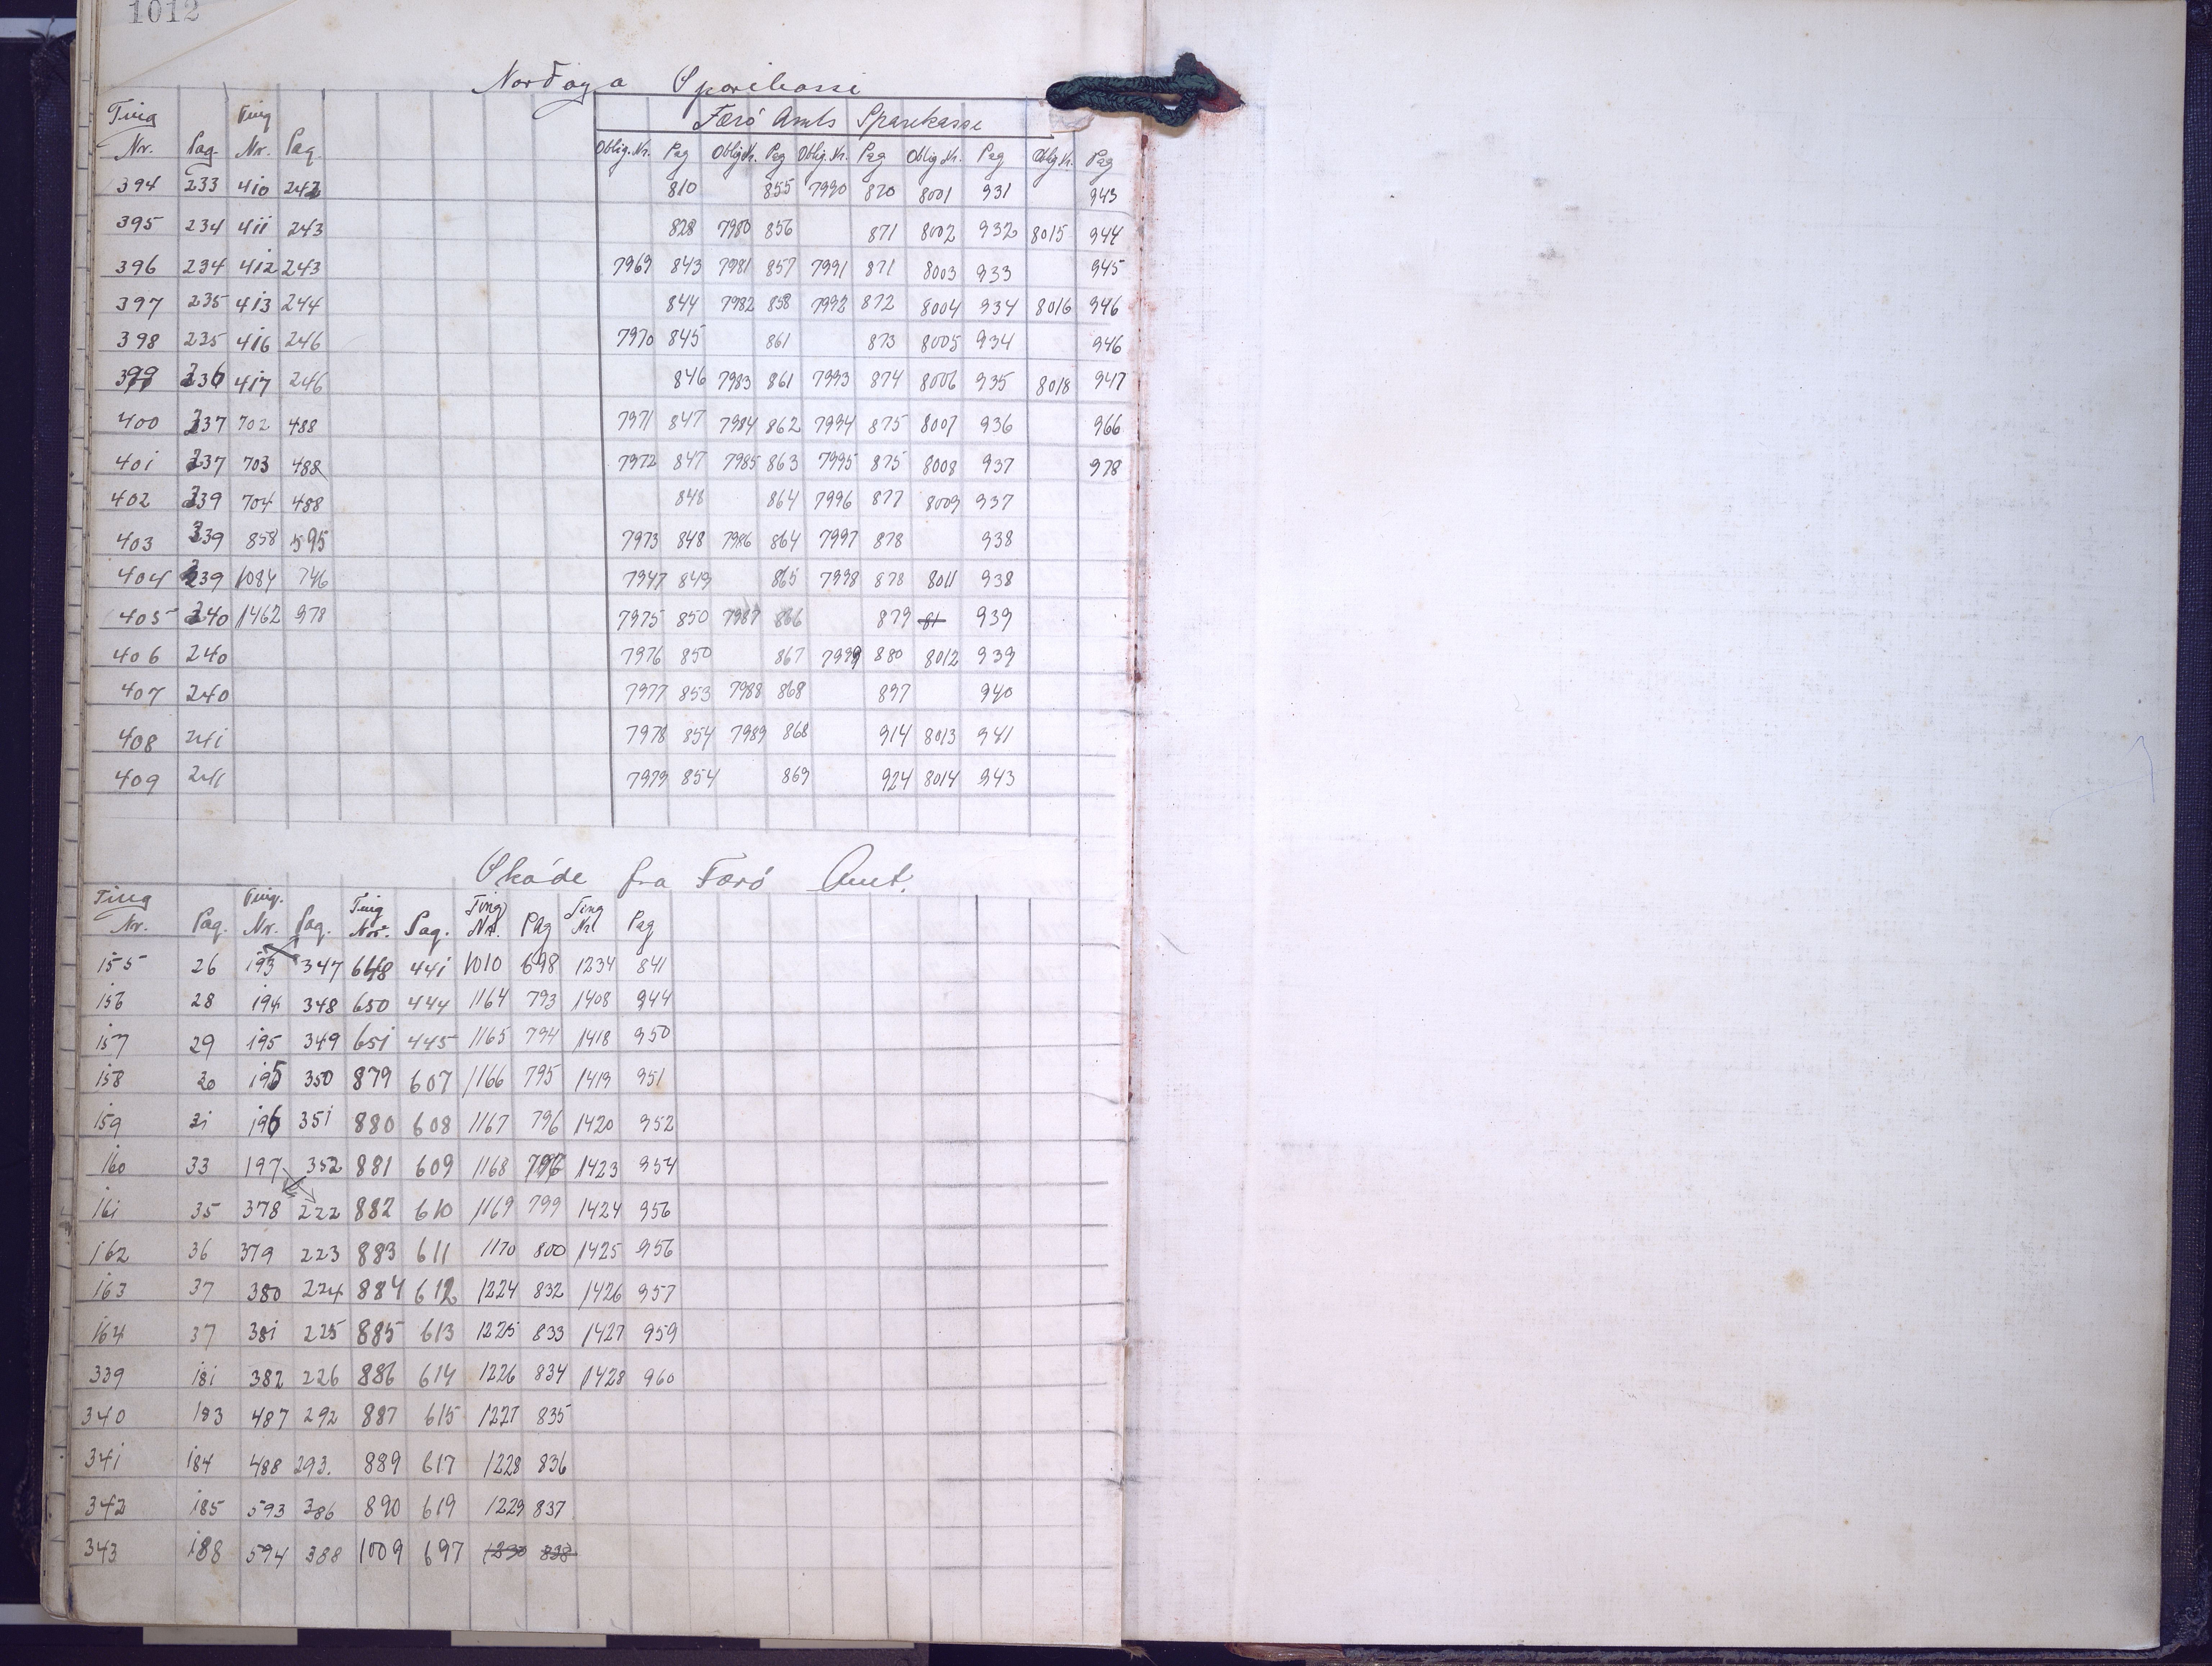 1012
Norðoya Sparikassi
Færö Amts Sparekasse
Ting Ting
Nr. Pag. Nr. Pag. Oblig.Nr. Pag Oblig.Nr. Pag Oblig.Nr. Pag Oblig.Nr. Pag Oblig.Nr. Pag
394 233 410 242 810 855 7990 870 8001 931 943
395 234 411 243 828 7980 856 871 8002 932 8015 944
396 234 412 243 7969 843 7981 857 7991 871 8003 933 945
397 235 413 244 844 7982 858 7992 872 8004 934 8016 946
398 235 416 246 7970 845 861 873 8005 934 946
399 236 417 246 846 7983 861 7993 874 8006 935 8018 947
400 237 702 488 7971 847 7984 862 7994 875 8007 936 966
401 237 703 488 7972 847 7985 863 7995 875 8008 937 978
402 239 704 488 848 864 7996 877 8009 937
403 239 858 595 7973 848 7986 864 7997 878 938
404 239 1084 746 7947 849 865 7998 878 8011 938
405 240 1462 978 7975 850 7987 866 879 81 939
406 240 7976 850 867 7999 880 8012 939
407 240 7977 853 7988 868 897 940
408 241 7978 854 7989 868 914 8013 941
409 241 7979 854 869 924 8014 943
Skøde fra Færö Amt.
Ting Ting. Ting Ting Ting
Nr. Pag. Nr. Pag. Nr. Pag. Nr. Pag Nr. Pag
155 26 193 347 648 441 1010 698 1234 841
156 28 194 348 650 444 1164 793 1408 944
157 29 195 349 651 445 1165 794 1418 950
158 30 195 350 879 607 1166 795 1419 951
159 31 196 351 880 608 1167 796 1420 952
160 33 197 352 881 609 1168 796 1423 954
161 35 378 222 882 610 1169 799 1424 956
162 36 379 223 883 611 1170 800 1425 956
163 37 380 224 884 612 1224 832 1426 957
164 37 381 225 885 613 1225 833 1427 959
339 181 382 226 886 614 1226 834 1428 960
340 183 487 292 887 615 1227 835
341 184 488 293. 889 617 1228 836
342 185 593 386 890 619 1229 837
343 188 594 388 1009 697 1230 838